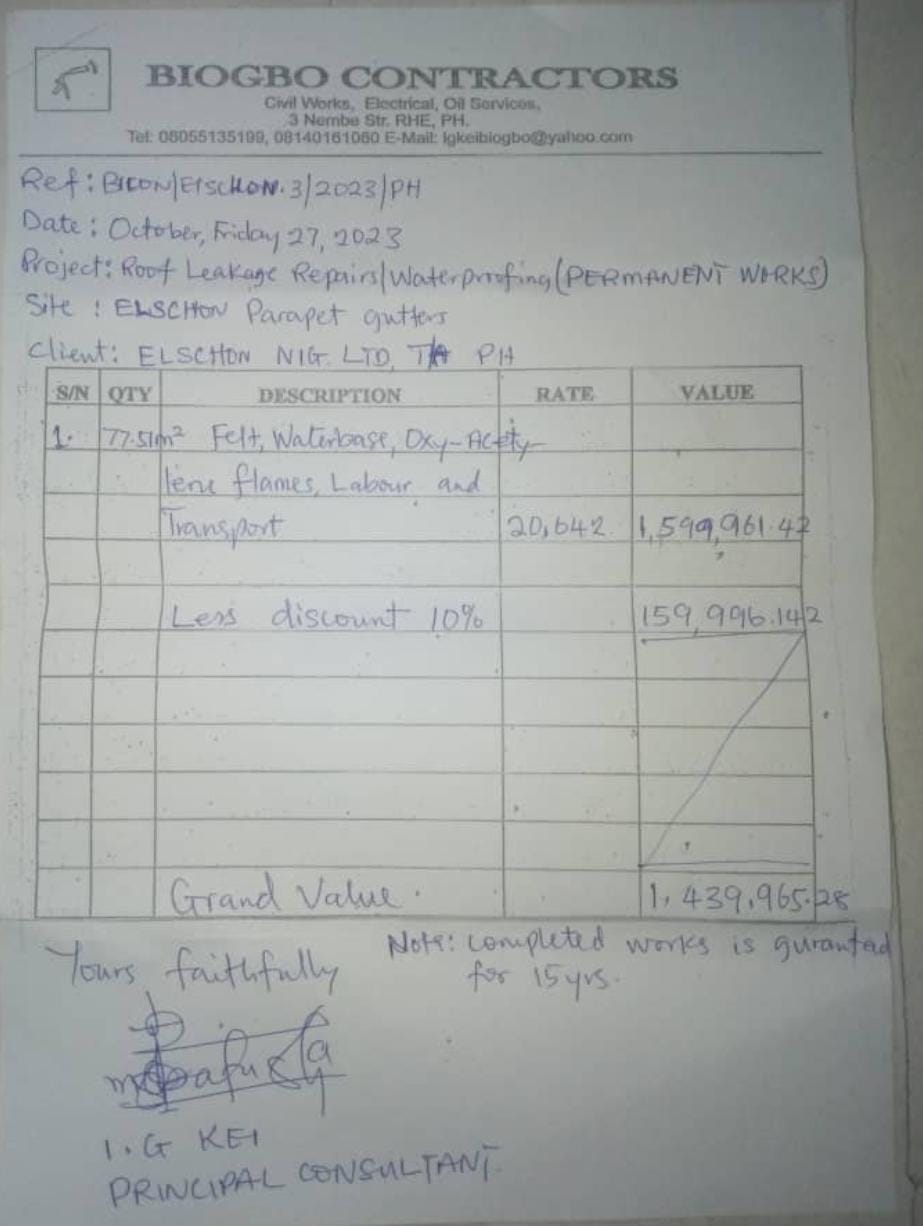 BIOGBO CONTRACTORS
Civil Works, Electrical, Oil Services,
3 Nembe Str. RHE, PH.
Tel: 08055135199, 08140161060 E-Mail: igkeibiogbo@yahoo.com
Ref: BICON/ElSCHON.3/2023/PH
Date: October, Friday 27, 2023
Project: Roof Leakage Repairs/Waterproofing (PERMANENT WORKS)
Site : ELSCHON Parapet gutters
Client: ELSCHON NIG. LTD, PH
S/N QTY DESCRIPTION RATE VALUE
1. 77.51m² Felt, Waterbase, Oxy-Acety-
lene flames, Labour and
Transport 20,642 1,599,961.42
Less discount 10% 159,996.142
Grand Value. 1,439,965.28
Yours faithfully
Note: completed works is guranteed
for 15yrs.
I.G KEI
PRINCIPAL CONSULTANT.